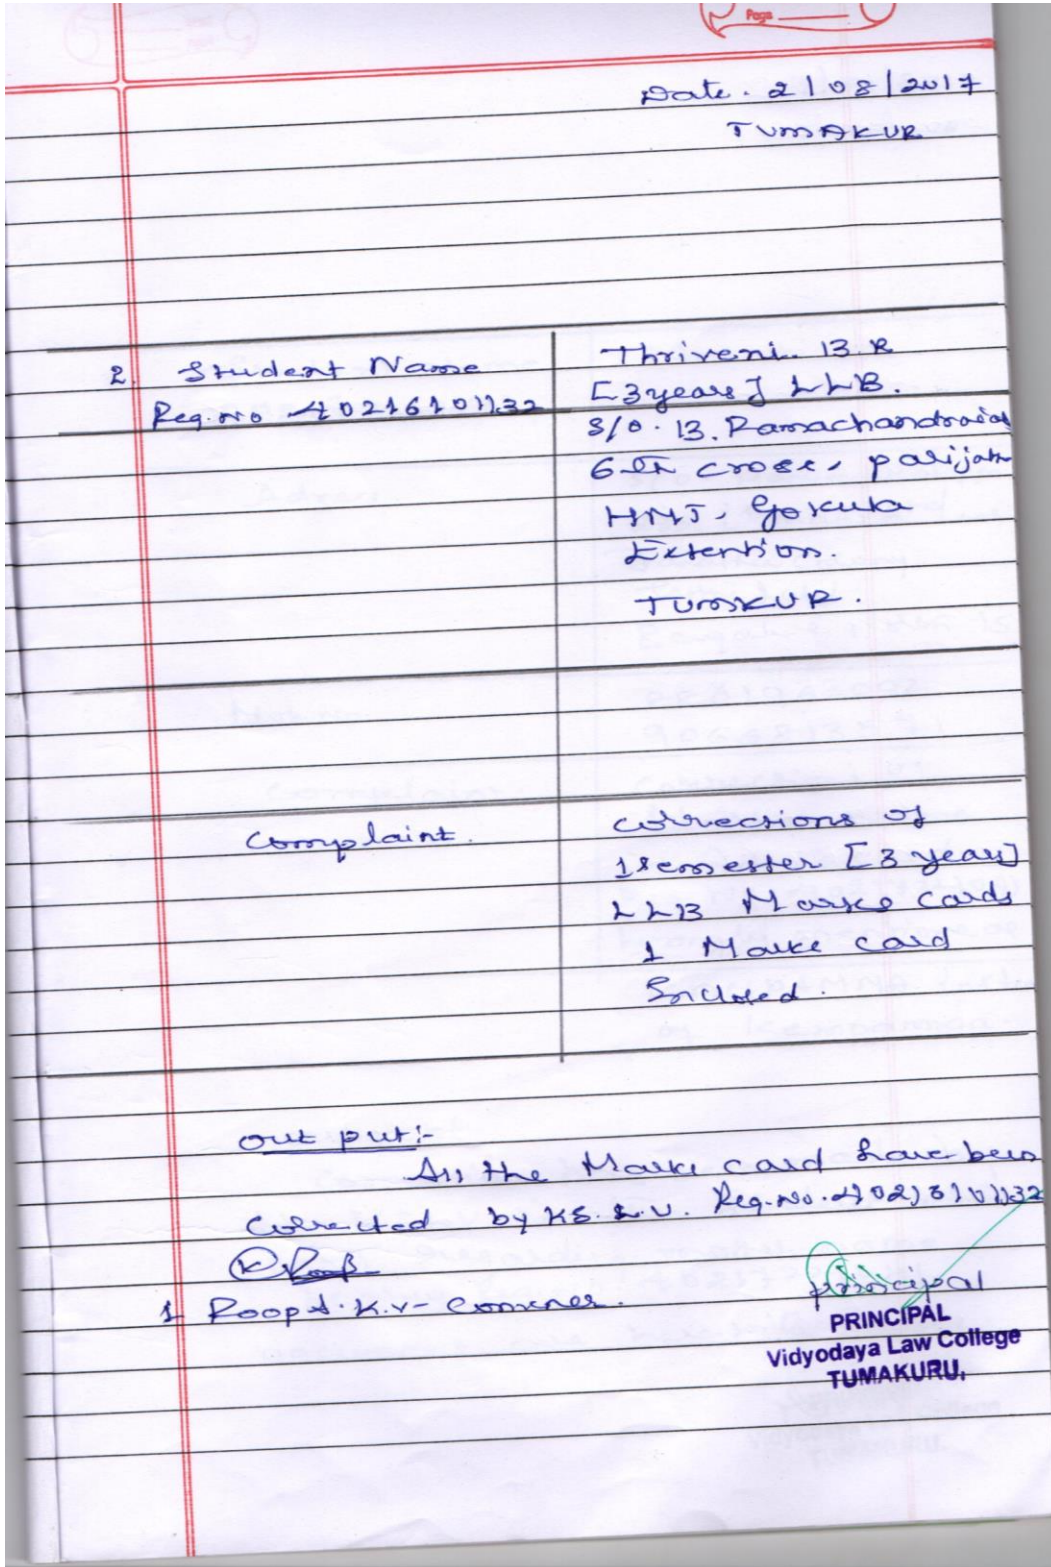 Page
Date. 2/08/2017
TUMAKUR
2. Student Name
Reg.No 40216101132
Thriveni. B.R
[3years] LLB.
S/o. B. Ramachandraiah
6th cross, parijath
HMT, Gokula
Extention.
TUMKUR.
Complaint.
corrections of
1semester [3 year]
LLB Marks Cards
1 Marks card
Enclosed.
Out put:-
All the Marks card have been
corrected by K.S.L.U. Reg.No. 40216101132
1 Roopa.K.V- Convener.
principal
PRINCIPAL
Vidyodaya Law College
TUMAKURU,